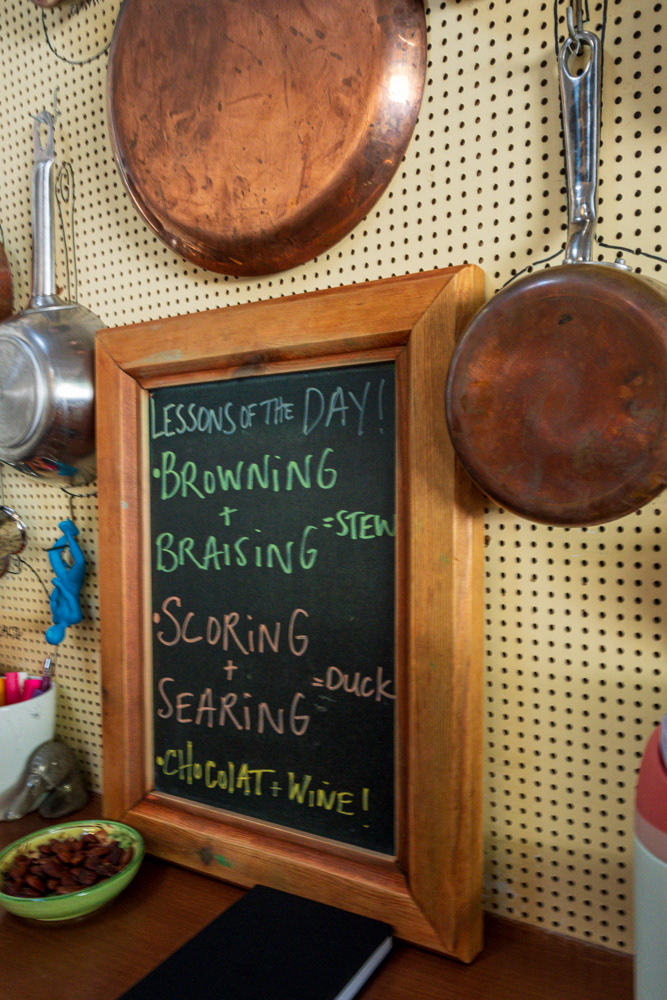 LESSONS OF THE DAY!
•BROWNING
+
BRAISING =STEW
•SCORING
+
SEARING =DUCK
•CHOCOLAT + WINE!